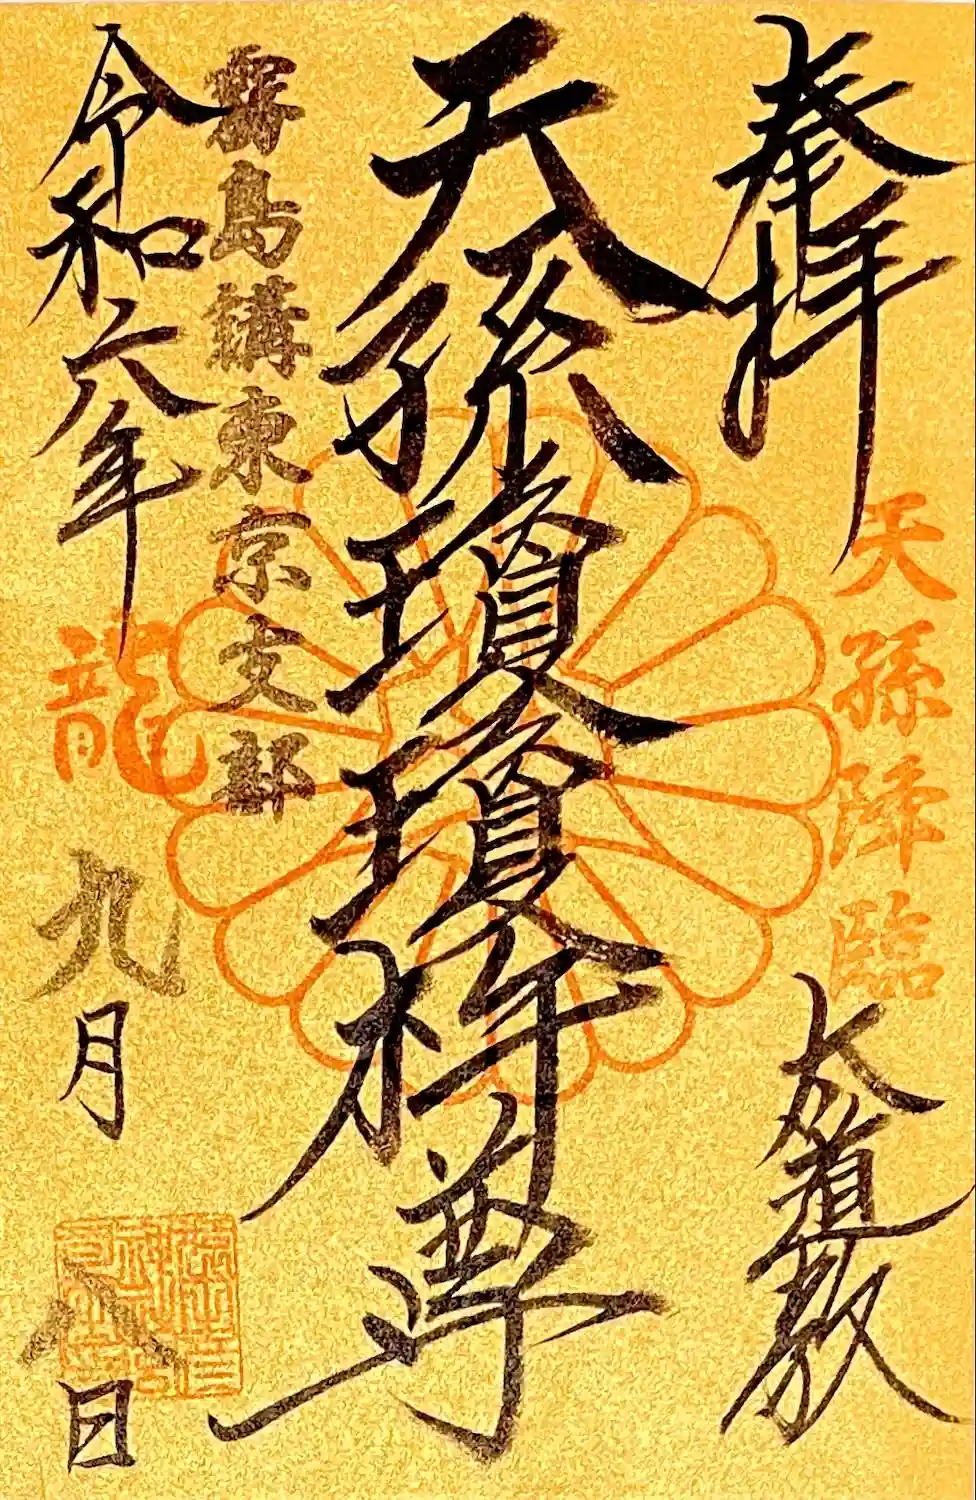 奉拝
大道教
天孫降臨
天孫瓊瓊杵尊
霧島講東京支部
令和六年
九月
八日
龍